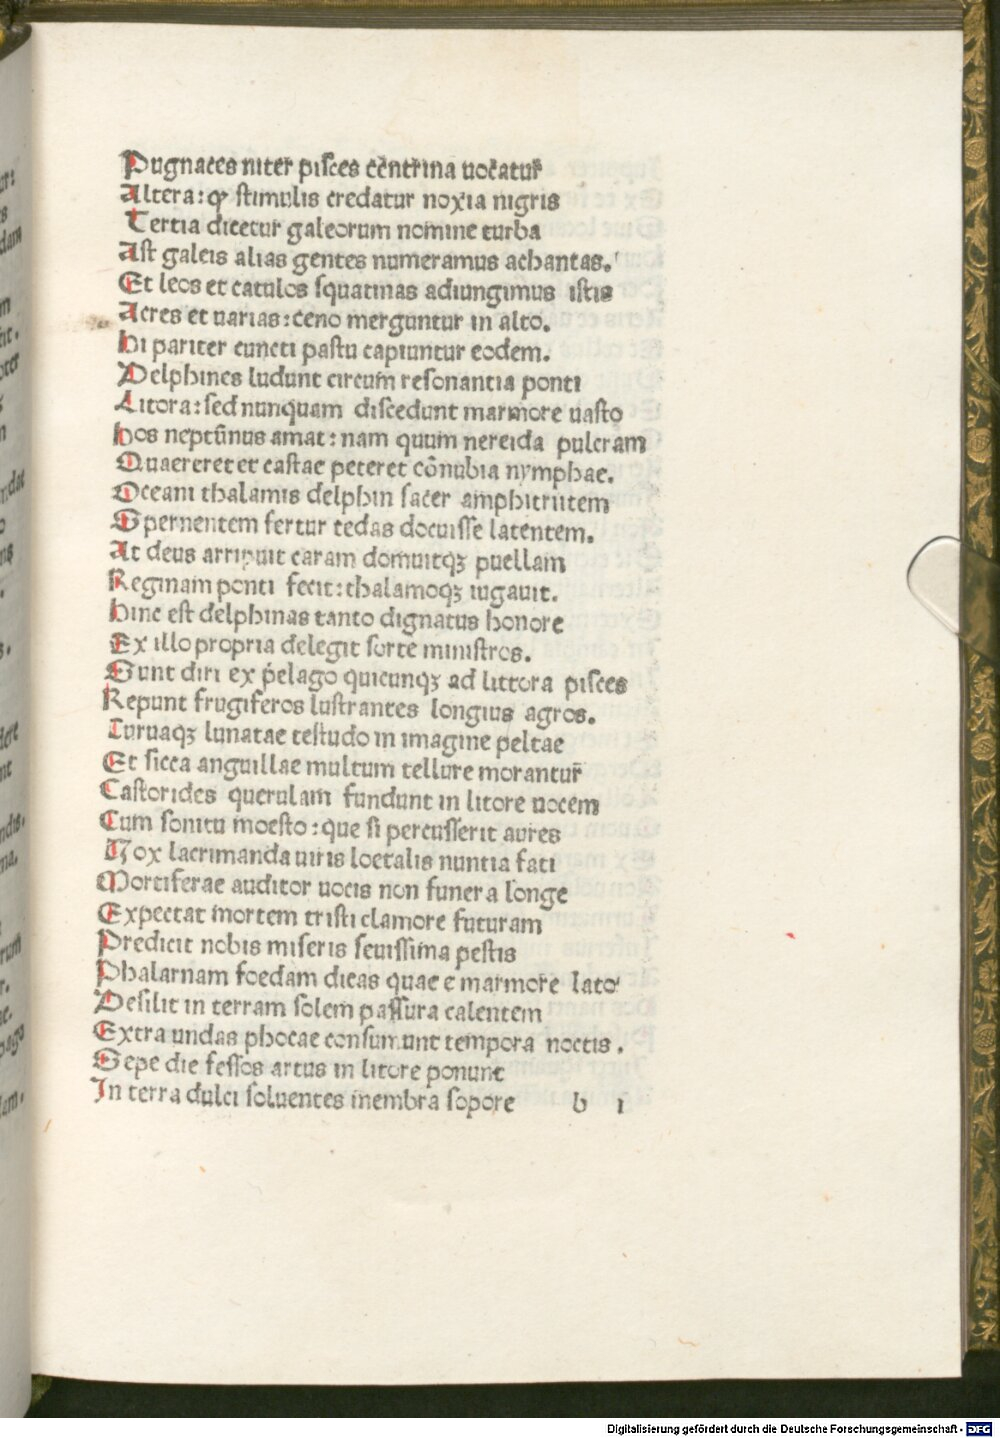 Pugnaces niter pisces centrina uocatur
Altera: ꝙ stimulis credatur noxia nigris
Tertia dicetur galeorum nomine turba
Ast galeis alias gentes numeramus achantas.
Et leos et catulos squatinas adiungimus istis
Acres et uarias: ceno merguntur in alto.
Hi pariter cuncti pastu capiuntur eodem.
Delphines ludunt circum resonantia ponti
Litora: sed nunquam discedunt marmore uasto
Hos neptūnus amat: nam quum nereida pulcram
Quaereret et castae peteret cōnubia nymphae.
Oceani thalamis delphin sacer amphitritem
Spernentem fertur tedas docuisse latentem.
At deus arripuit caram domuitqꝫ puellam
Reginam ponti fecit: thalamoqꝫ iugauit.
Hinc est delphinas tanto dignatus honore
Ex illo propria delegit sorte ministros.
Sunt diri ex pelago quicunqꝫ ad littora pisces
Repunt frugiferos lustrantes longius agros.
Curuaqꝫ lunatae testudo in imagine peltae
Et sicca anguillae multum tellure morantur
Castorides querulam fundunt in litore uocem
Cum sonitu moesto: que si percusserit aures
Nox lacrimanda uiris loetalis nuntia fati
Mortiferae auditor uocis non funera longe
Expectat mortem tristi clamore futuram
Predicit nobis miseris seuissima pestis
Phalarnam foedam dicas quae e marmore lato
Desilit in terram solem passura calentem
Extra undas phocae consumunt tempora noctis.
Sepe die fessos artus in litore ponunt
In terra dulci soluentes membra sopore b i
Digitalisierung gefördert durch die Deutsche Forschungsgemeinschaft - DFG